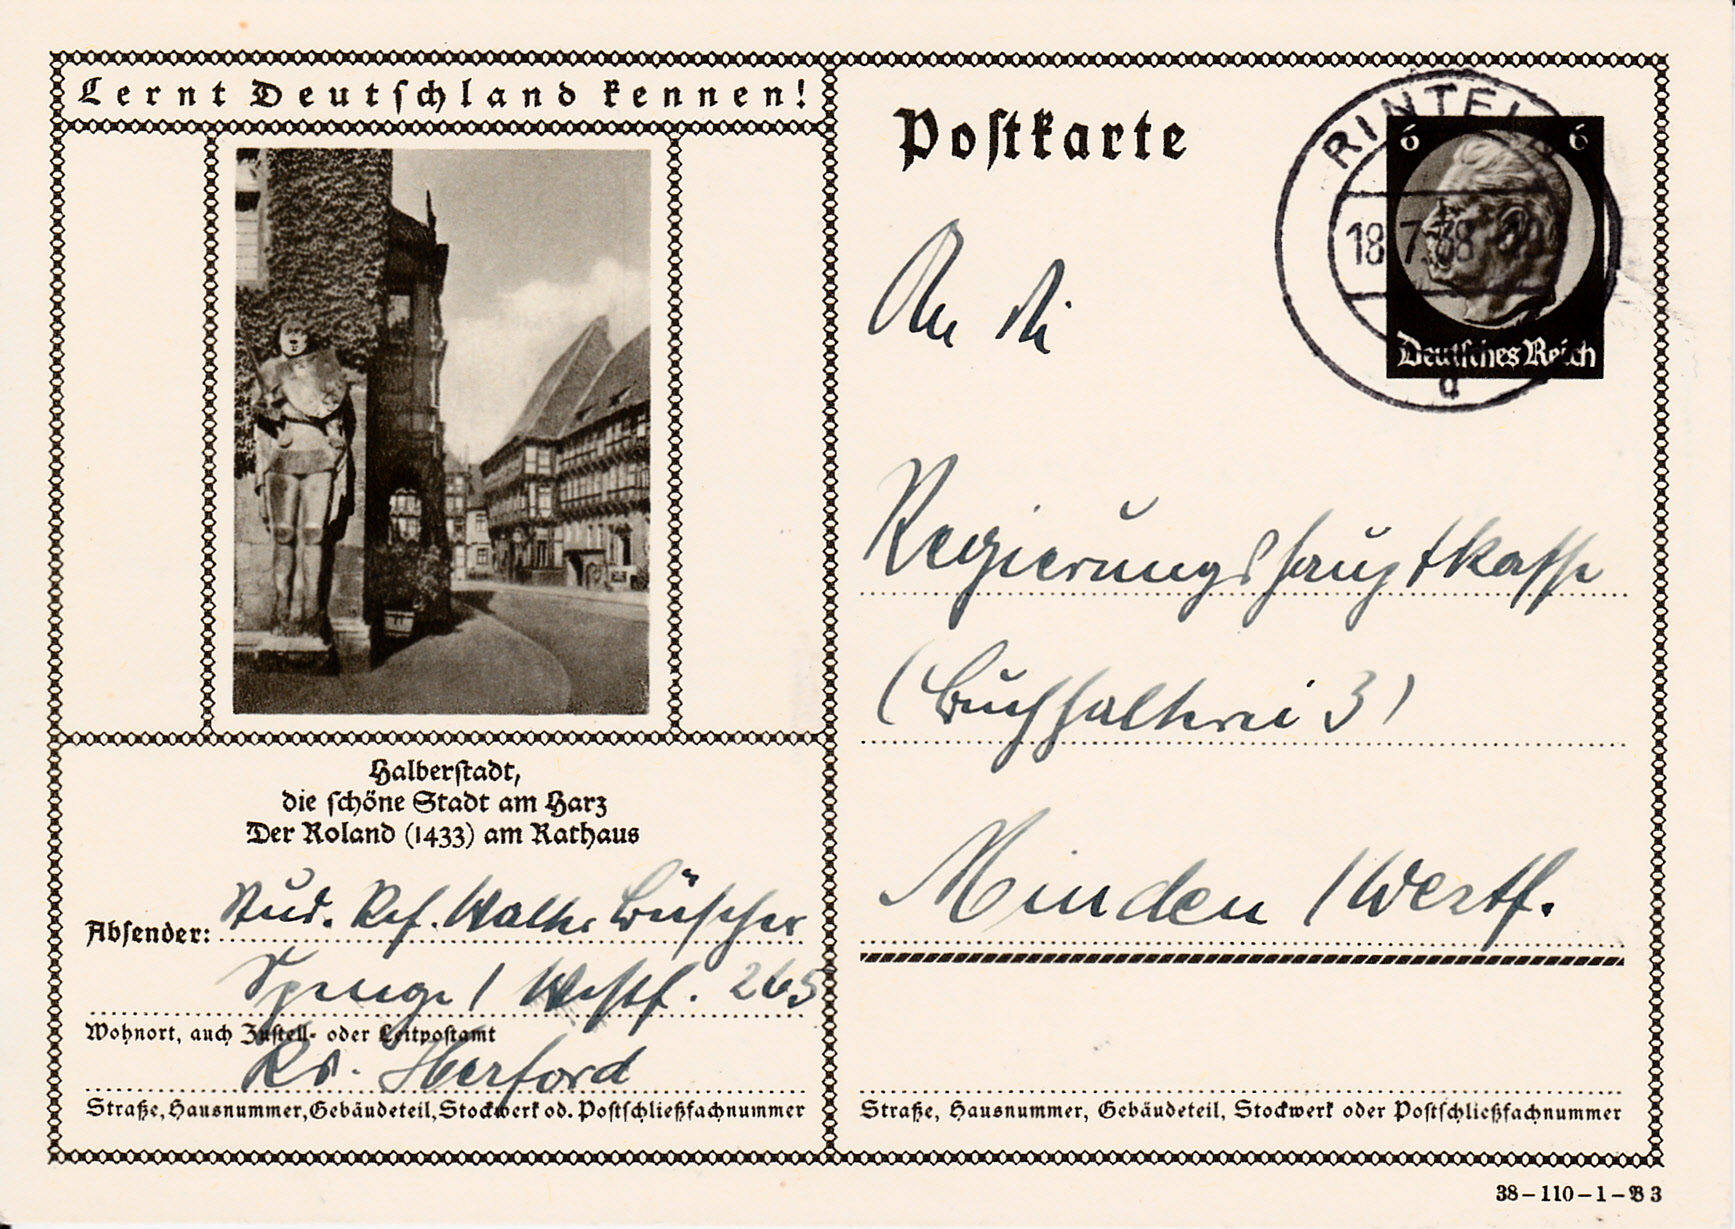 Lernt Deutschland kennen!
Halberstadt,
die schöne Stadt am Harz
Der Roland (1433) am Rathaus
Absender: Stud. Ref. Walter Büscher
Spenge / Westf. 265
Wohnort, auch Zustell- oder Leitpostamt
Kr. Herford
Straße, Hausnummer, Gebäudeteil, Stockwerk od. Postschließfachnummer
Postkarte
RINTELN
18.7.38
d
6 6
Deutsches Reich
An die
Regierungshauptkasse
(Buchhalterei 3)
Minden / Westf.
Straße, Hausnummer, Gebäudeteil, Stockwerk oder Postschließfachnummer
38-110-1-B 3